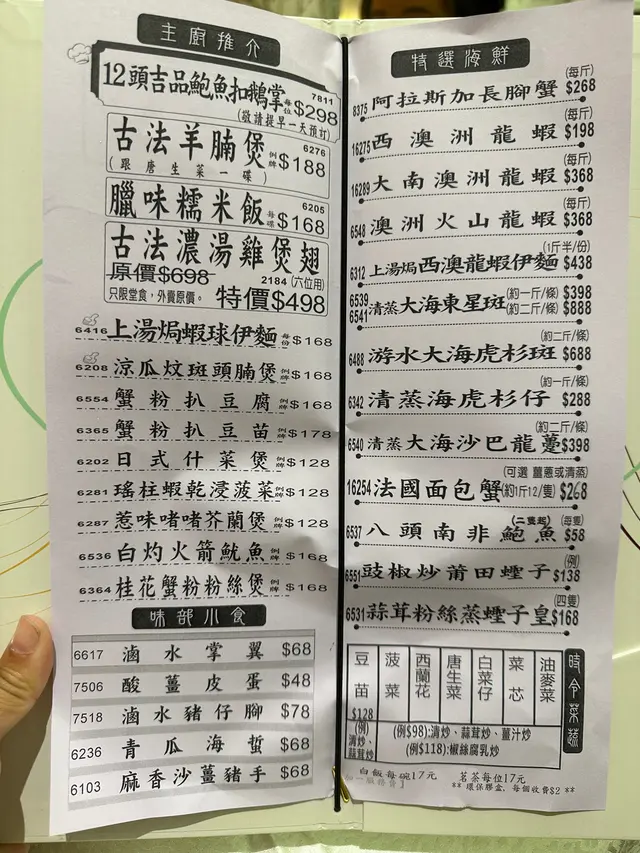 主廚推介
7811
12頭吉品鮑魚扣鵝掌 每位 $298
(敬請提早一天預訂)
6276
古法羊腩煲 例牌 $188
(跟唐生菜一碟)
6205
臘味糯米飯 每碟 $168
古法濃湯雞煲翅
原價$698 2184 (六位用)
只限堂食，外賣原價。 特價$498
6416 上湯焗蝦球伊麵 每份 $168
6208 涼瓜炆斑頭腩煲 例牌 $168
6554 蟹粉扒豆腐 例牌 $168
6365 蟹粉扒豆苗 例牌 $178
6202 日式什菜煲 例牌 $128
6281 瑤柱蝦乾浸菠菜 例牌 $128
6287 惹味啫啫芥蘭煲 例牌 $128
6536 白灼火箭魷魚 例牌 $168
6364 桂花蟹粉粉絲煲 例牌 $168
味部小食
6617 滷水掌翼 $68
7506 酸薑皮蛋 $48
7518 滷水豬仔腳 $78
6236 青瓜海蜇 $68
6103 麻香沙薑豬手 $68
特選海鮮
(每斤)
8375 阿拉斯加長腳蟹 $268
(每斤)
16275 西澳洲龍蝦 $198
(每斤)
16289 大南澳洲龍蝦 $368
(每斤)
6548 澳洲火山龍蝦 $368
(1斤半/份)
6312 上湯焗西澳龍蝦伊麵 $438
6539 清蒸大海東星斑 (約一斤/條) $398
6541 (約二斤/條) $888
(約二斤/條)
6488 游水大海虎杉斑 $688
(約一斤/條)
6342 清蒸海虎杉仔 $288
(約二斤/條)
6540 清蒸大海沙巴龍躉 $398
(可選 薑蔥或清蒸)
16254 法國面包蟹 (約1斤12/隻) $268
(二隻起) (每隻)
6537 八頭南非鮑魚 $58
(例)
6551 豉椒炒莆田蟶子 $138
(四隻)
6531 蒜茸粉絲蒸蟶子皇 $168
時令菜蔬
豆苗 $128
菠菜
西蘭花
唐生菜
白菜仔
菜芯
油麥菜
(例) 清炒、蒜茸炒
(例$98):清炒、蒜茸炒、薑汁炒
(例$118):椒絲腐乳炒
白飯每碗17元 茗茶每位17元
** 環保膠盒，每個收費$2 **